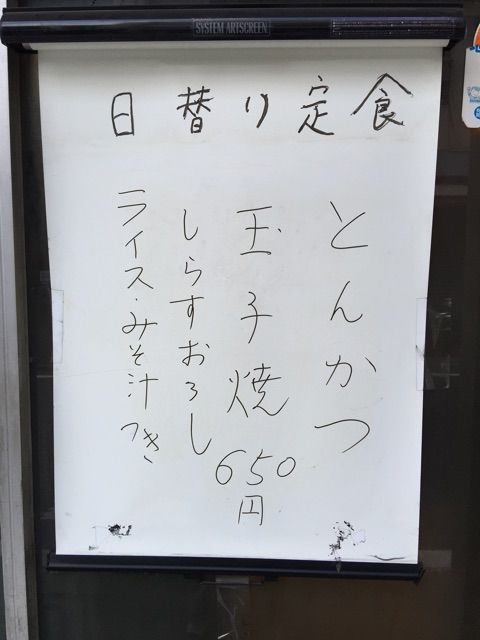 SYSTEM ARTSCREEN
日替り定食
とんかつ
玉子焼
650
円
しらすおろし
ライス・みそ汁つき